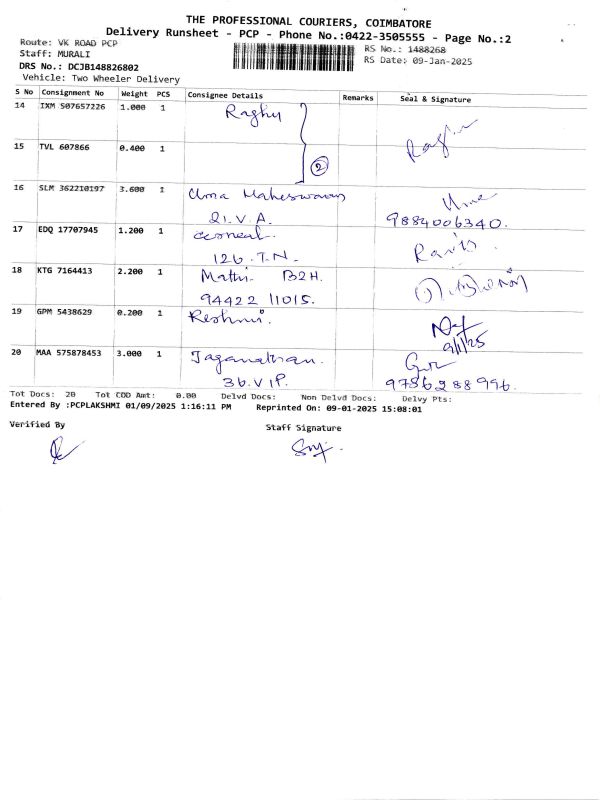 THE PROFESSIONAL COURIERS, COIMBATORE
Delivery Runsheet - PCP - Phone No.:0422-3505555 - Page No.:2
Route: VK ROAD PCP
RS No.: 1488268
Staff: MURALI
RS Date: 09-Jan-2025
DRS No.: DCJB148826802
Vehicle: Two Wheeler Delivery
S No Consignment No Weight PCS Consignee Details Remarks Seal & Signature
14 IXM 507657226 1.000 1 Raghu
15 TVL 607866 0.400 1 2
16 SLM 362210197 3.600 1 Uma Maheswaran Uma
21.V.A. 9884006340.
17 EDQ 17707945 1.200 1
126.T.N.
18 KTG 7164413 2.200 1 Mathi. B2H.
94422 11015.
19 GPM 5438629 0.200 1 Reshmi.
9/1/25
20 MAA 575878453 3.000 1 Jaganathan.
36.VIP. 9786288996.
Tot Docs: 20 Tot COD Amt: 0.00 Delvd Docs: Non Delvd Docs: Delvy Pts:
Entered By :PCPLAKSHMI 01/09/2025 1:16:11 PM Reprinted On: 09-01-2025 15:08:01
Verified By
Staff Signature